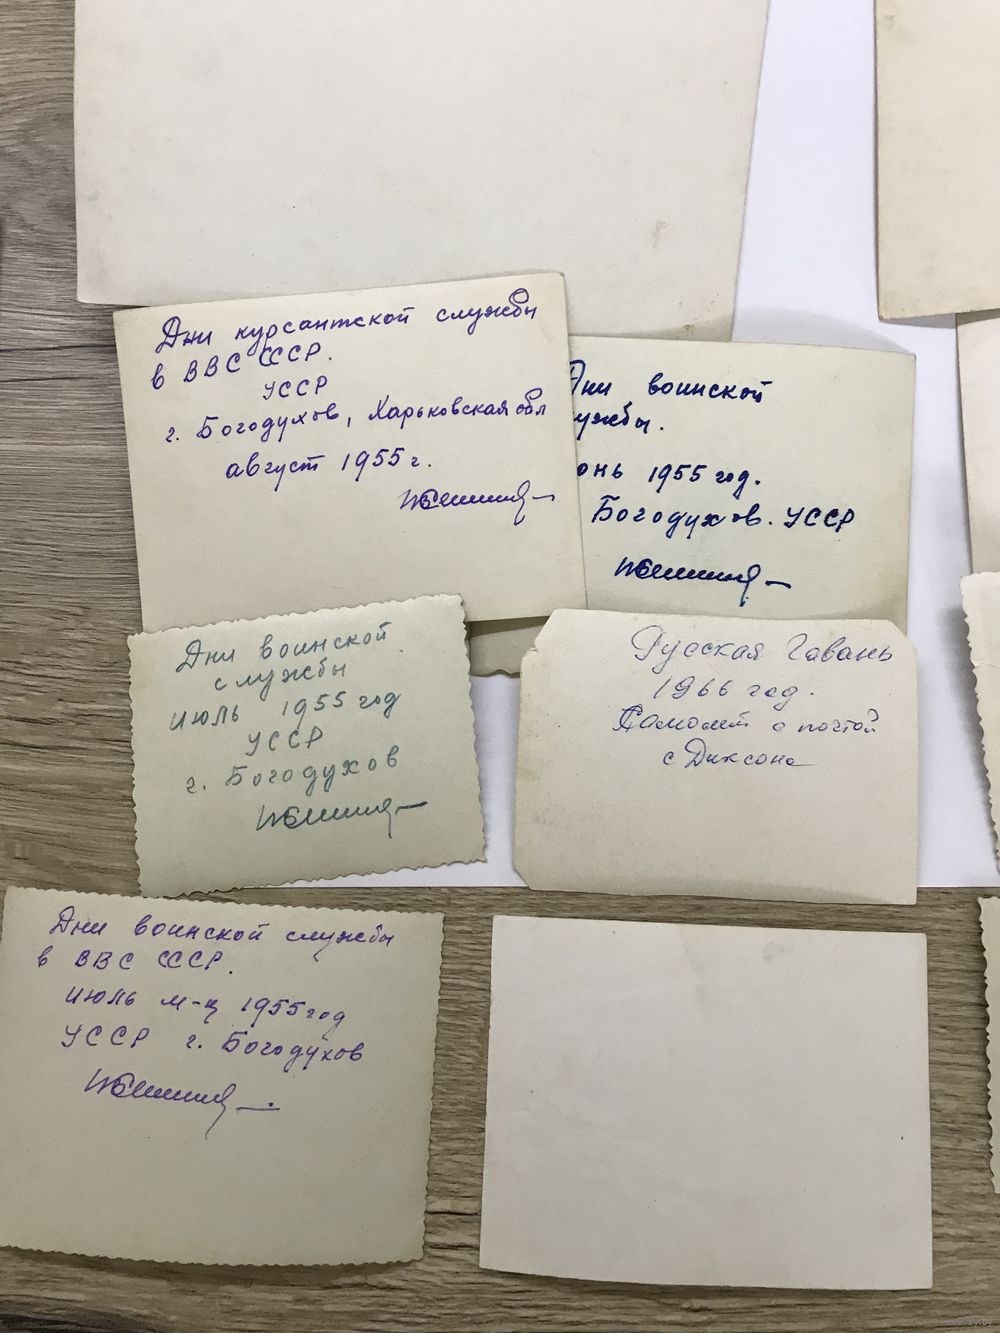 Дни курсантской службы
в ВВС СССР.
УССР
г. Богодухов, Харьковская обл
август 1955 г.
Дни воинской
ужбы.
юнь 1955 год.
Богодухов. УССР
Дни воинской
службы
июль 1955 год
УССР
г. Богодухов
Русская Гавань
1966 год.
Самолёт с почтой
с Диксона
Дни воинской службы
в ВВС СССР.
июль м-ц 1955 год
УССР г. Богодухов